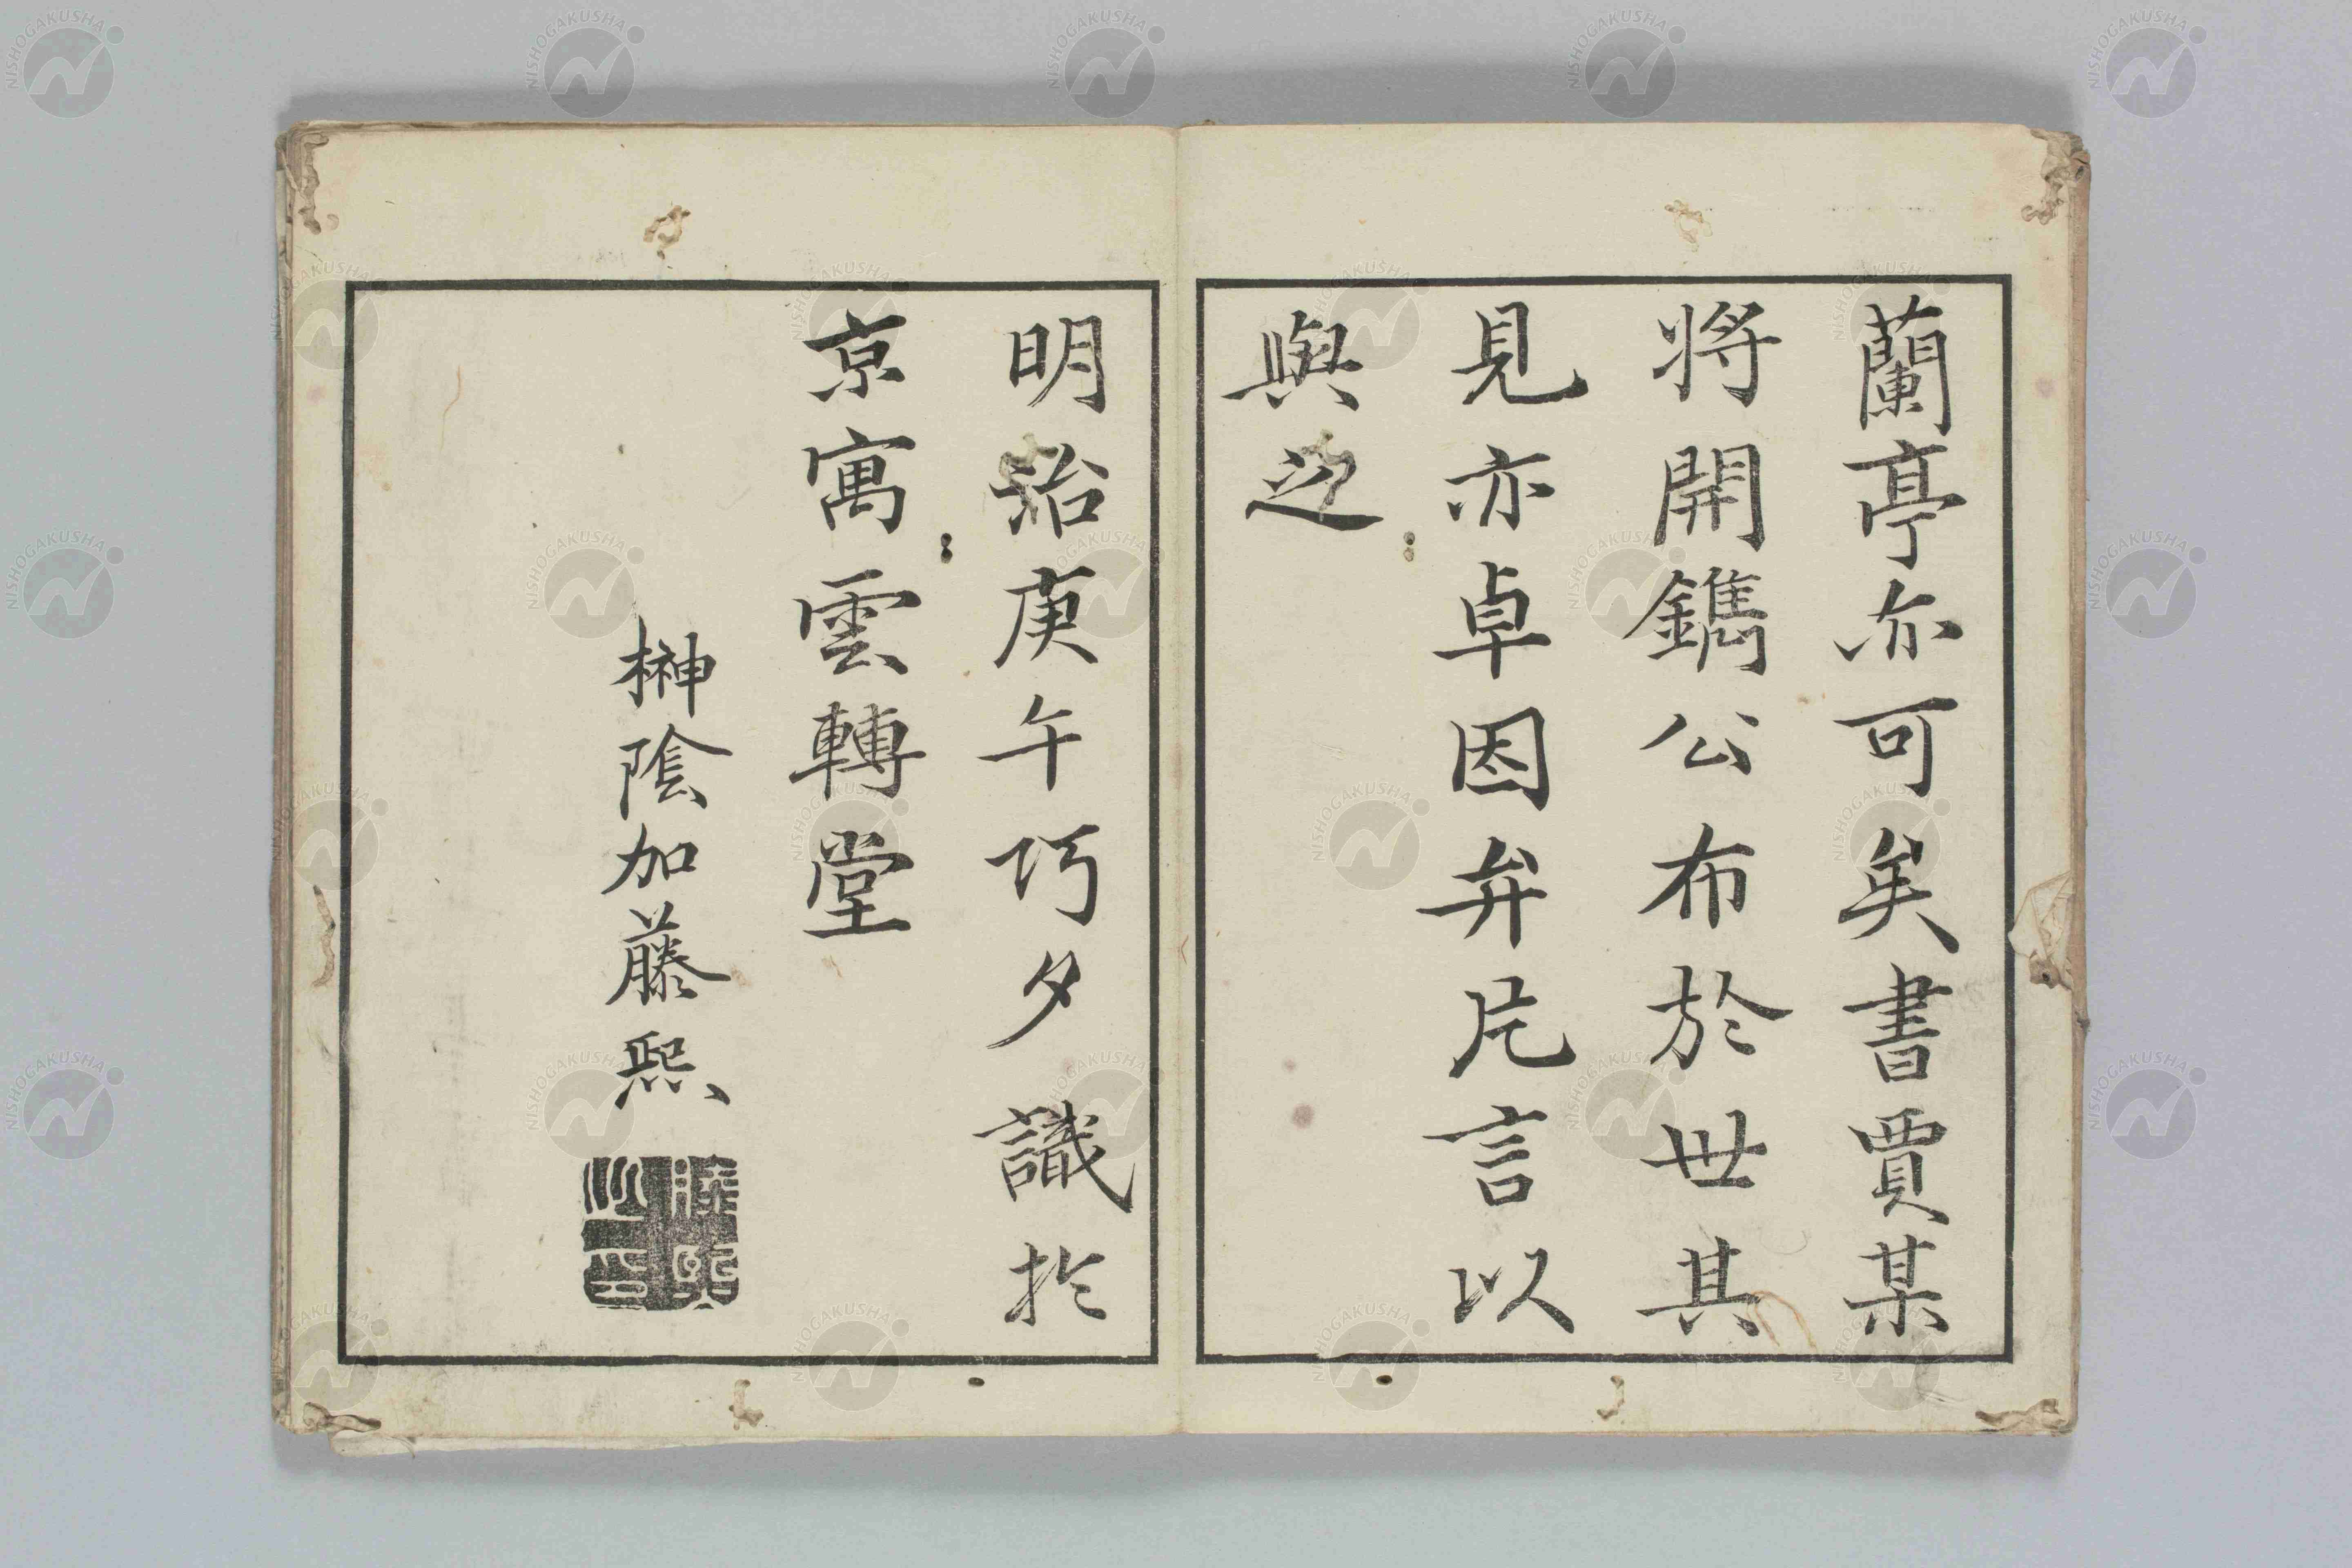 蘭亭亦可矣書賈某
將開鐫公布於世其
見亦卓因弁片言以
與之
明治庚午巧夕識於
京寓雲轉堂
榊陰加藤熙
藤熙之印
NISHOGAKUSHA